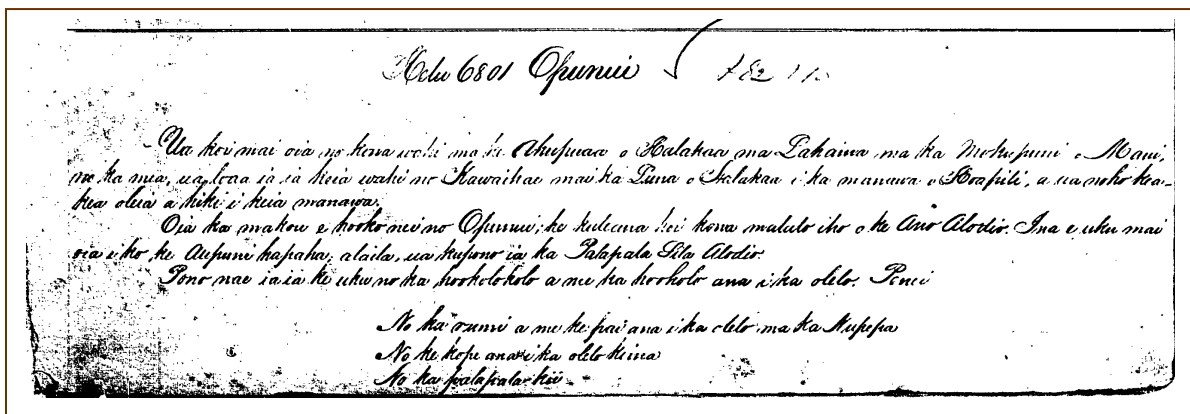 Helu 6801 Opunui
Ua koi mai oia no kona wahi ma ke Ahupuaa o Halakaa ma Lahaina ma ka Mokupuni o Maui,
no ka mea, ua loaa ia ia keia wahi no Kawaihae mai ka Puna o Halakaa i ka manawa o Hoapili, a ua noho kea-
kea oleia a hiki i keia manawa.
Oia ka makou e hooko nei no Opunui, ke kuleana koi kona malalo iho o ke Ano Alodio. Ina e uku mai
oia i ko ke Aupuni hapaha, alaila, ua kupono ia ka Palapala Sila Alodio.
Pono nae ia ia ke uku no ka hookolokolo a me ka hooholo ana i ka olelo. Penei
No ka rumi a me ke pai ana i ka olelo ma ka Nupepa
No ke kope ana i ka olelo keina
No ka palapala kii